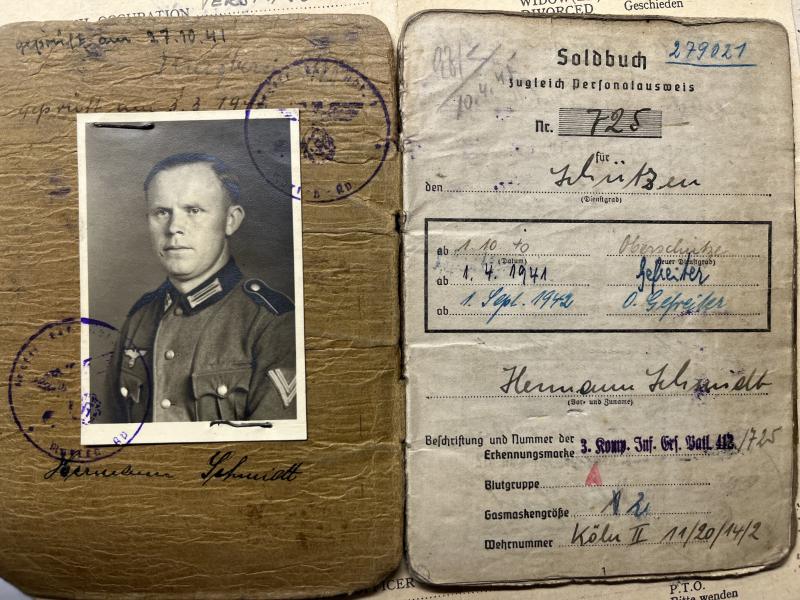 OCCUPATION
WIDOW
DIVORCED Geschieden
geprüft am 27.10.41
geprüft am 3.3.
Hermann Schmidt
Soldbuch 279021
zugleich Personalausweis
10.4.45
Nr. 725
für
den Schützen
(Dienstgrad)
ab 1.10.40 Oberschütze
(Datum) (neuer Dienstgrad)
ab 1.4.1941 Gefreiter
ab 1. Sept. 1942 O. Gefreiter
Hermann Schmidt
(Vor- und Zuname)
Beschriftung und Nummer der
Erkennungsmarke 3. Komp. Inf. Ers. Batl. 412 /725
Blutgruppe A
Gasmaskengröße 2
Wehrnummer Köln II 11/20/14/2
1
OFFICER
P.T.O.
Bitte wenden